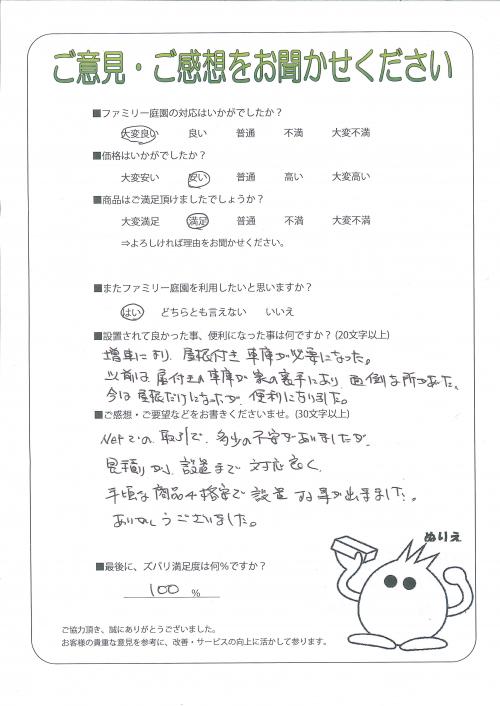 ご意見・ご感想をお聞かせください
■ファミリー庭園の対応はいかがでしたか？
大変良い 良い 普通 不満 大変不満
■価格はいかがでしたか？
大変安い 安い 普通 高い 大変高い
■商品はご満足頂けましたでしょうか？
大変満足 満足 普通 不満 大変不満
⇒よろしければ理由をお聞かせください。
■またファミリー庭園を利用したいと思いますか？
はい どちらとも言えない いいえ
■設置されて良かった事、便利になった事は何ですか？(20文字以上)
増車により、屋根付き車庫が必要になった。
以前は、扉付きの車庫が家の裏手にあり、面倒な所があった、
今は屋根だけになったが、便利になりました。
■ご感想・ご要望などをお書きくださいませ。(30文字以上)
Netでの取引で、多少の不安がありましたが、
見積りから設置まで対応良く、
手頃な商品が格安で設置する事が出来ました。
ありがとうございました。
ぬりえ
■最後に、ズバリ満足度は何％ですか？
100 %
ご協力頂き、誠にありがとうございました。
お客様の貴重な意見を参考に、改善・サービスの向上に活かして参ります。